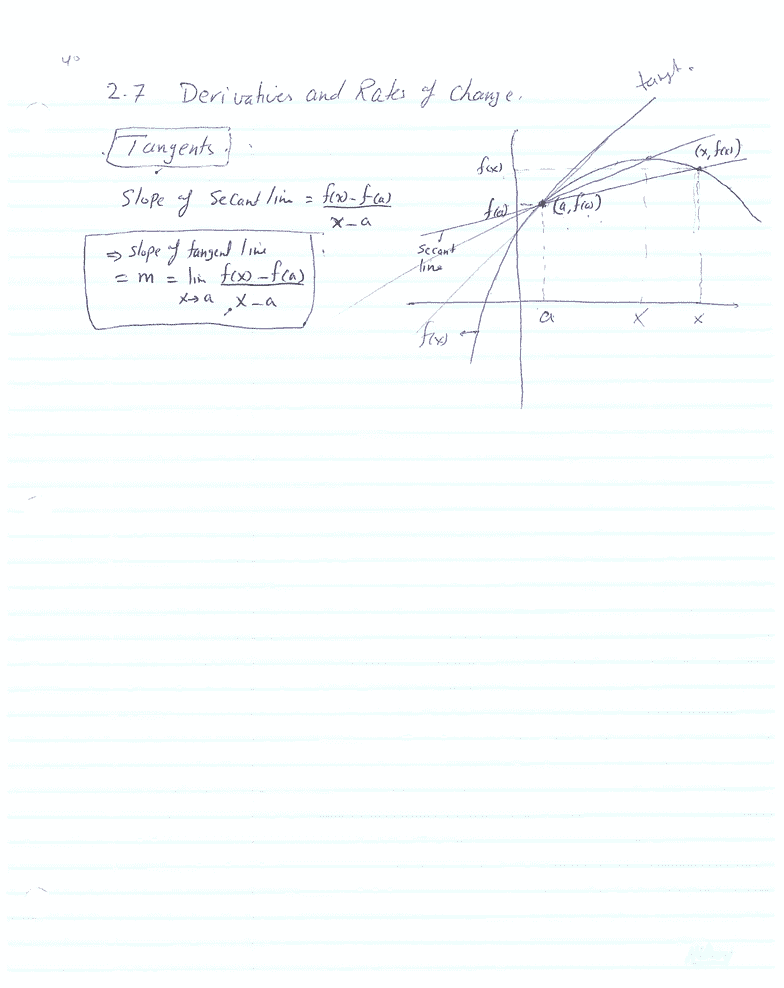 40
2.7 Derivatives and Rates of Change.
Tangents.
Slope of Secant line = f(x) - f(a) / x - a
⇒ Slope of tangent line
= m = lim x→a f(x) - f(a) / x - a
(x, f(x))
f(x)
f(a)
(a, f(a))
Secant
line
a
x
x
f(x) ←